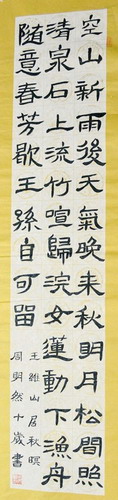 空山新雨後天氣晚來秋明月松間照
清泉石上流竹喧歸浣女蓮動下漁舟
隨意春芳歇王孫自可留
王維山居秋暝
周明然十歲書